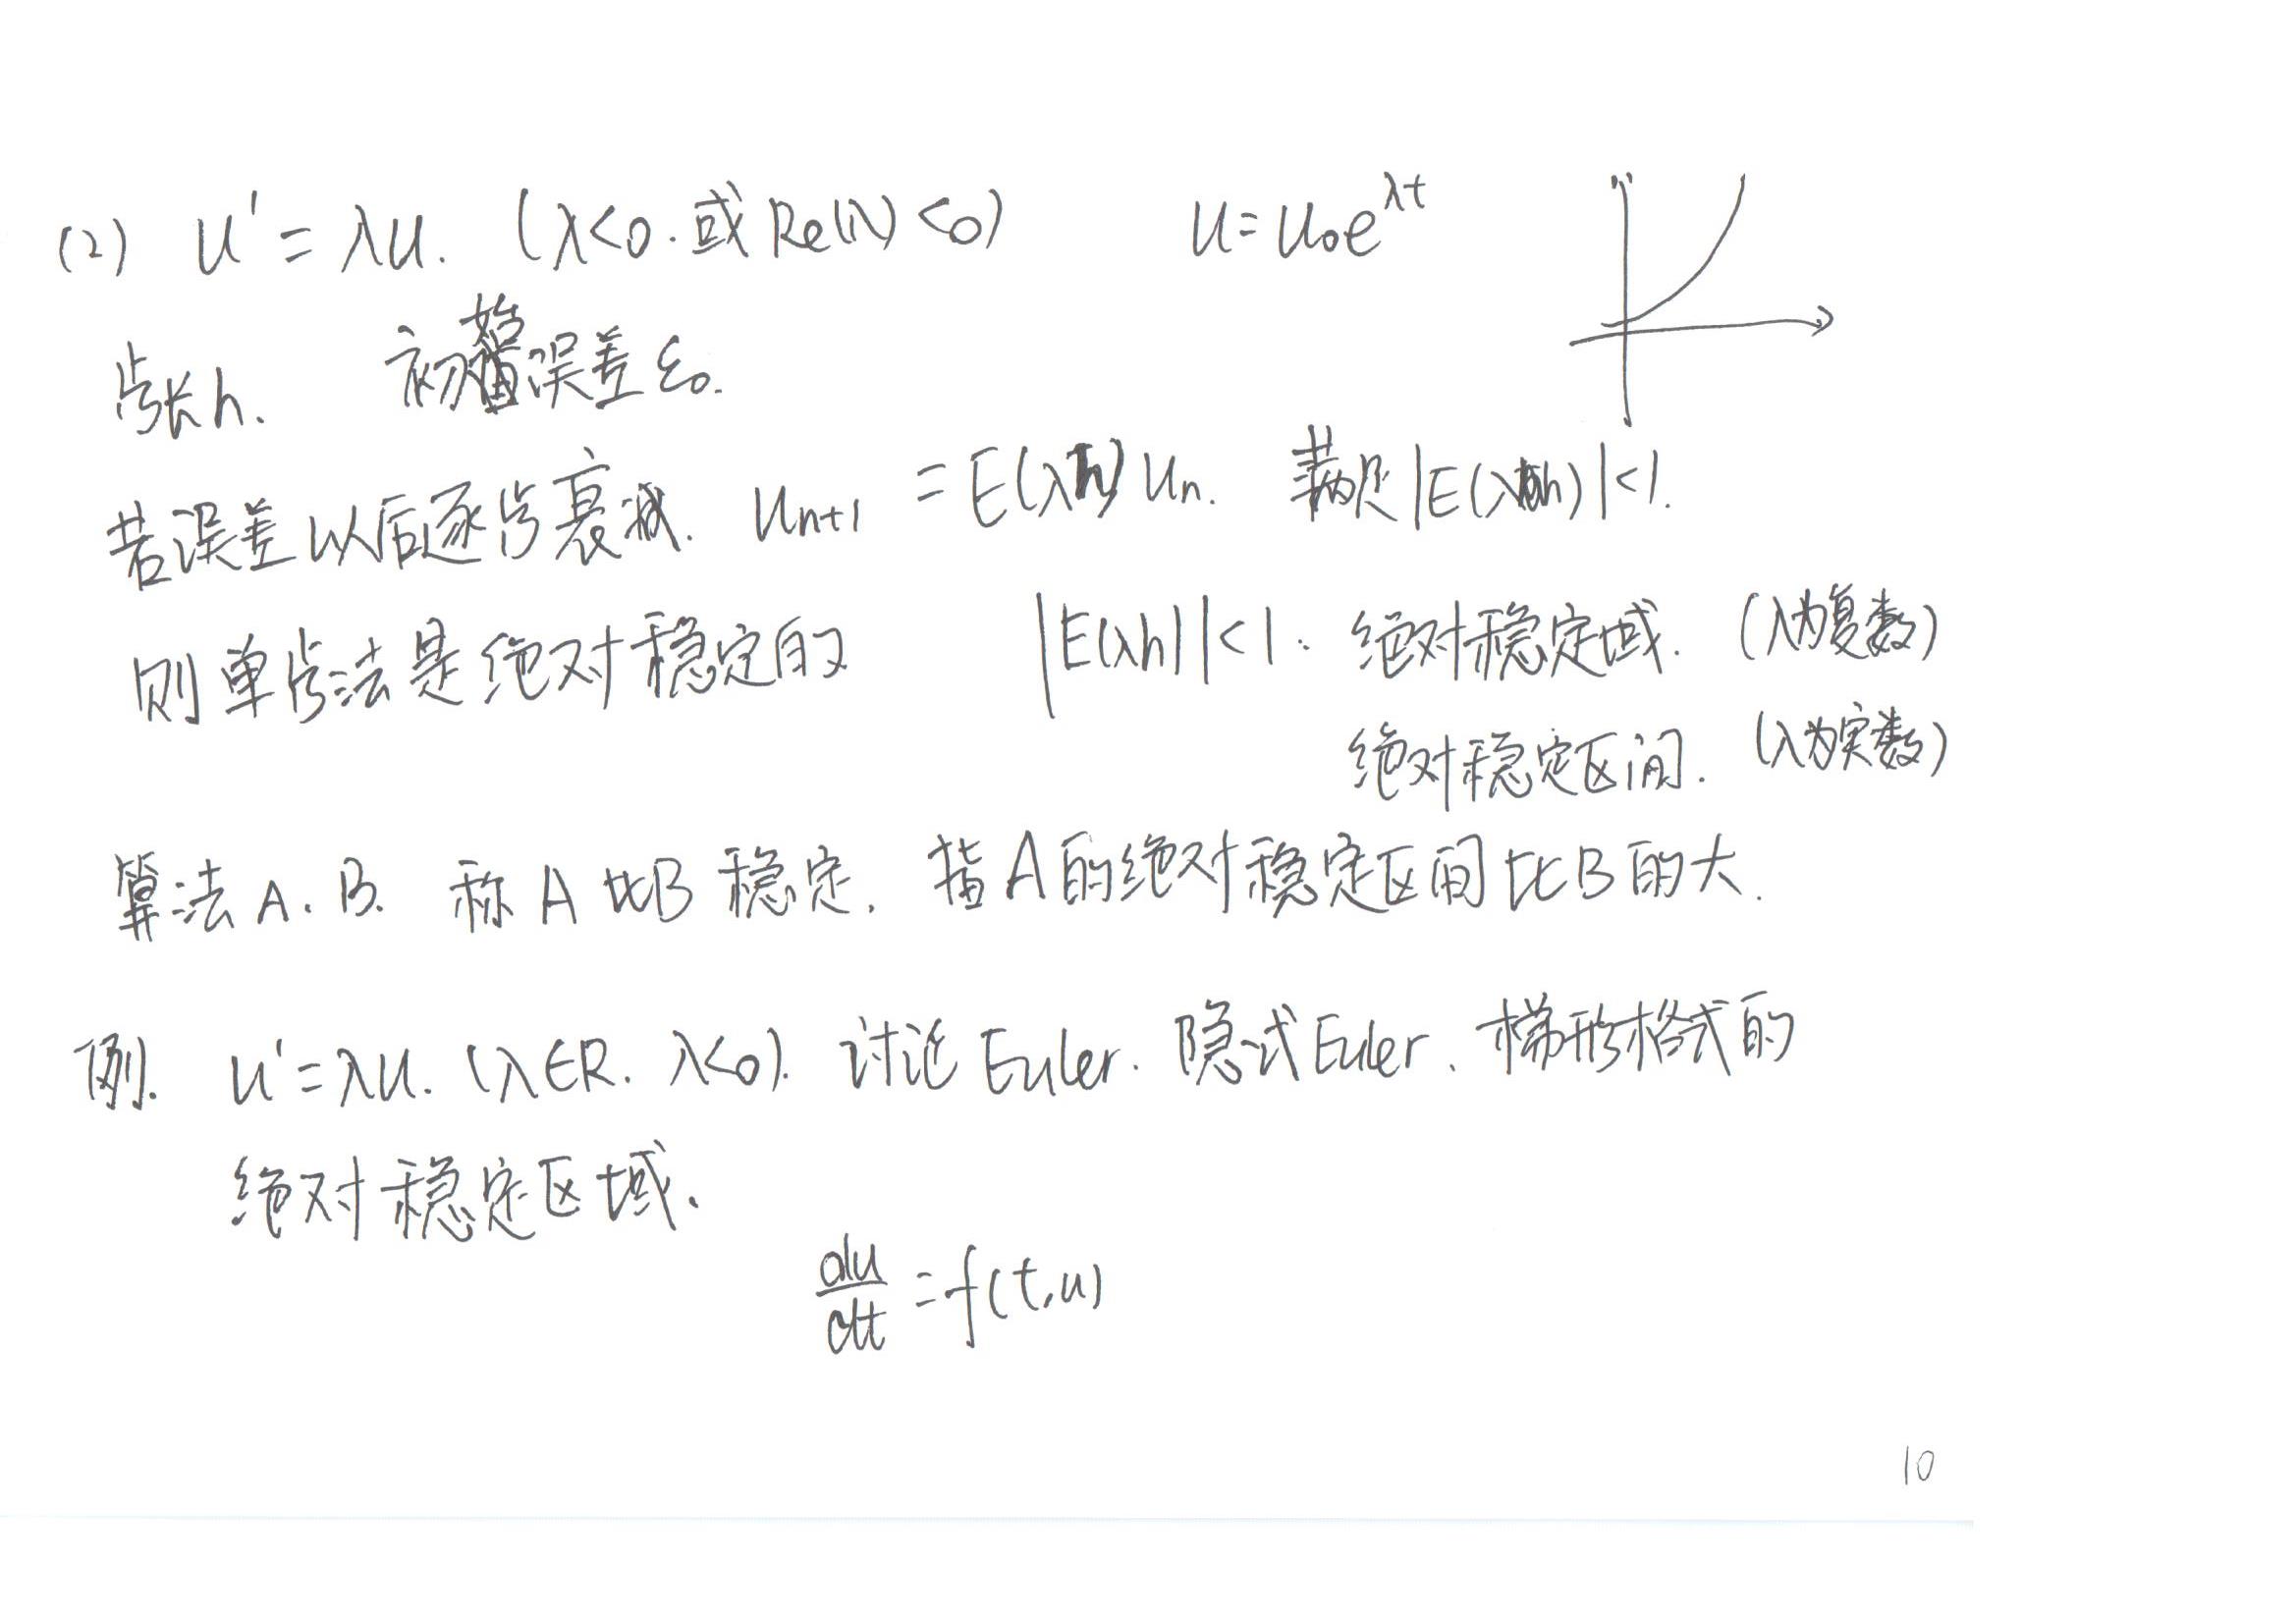 (2) u' = λu. (λ<0.或Re(λ)<0) u=u₀e^{λt}
步长h. 初始误差ε₀.
若误差以后逐步衰减. u_{n+1} = E(λh) u_n. 满足|E(λh)|<1.
则单步法是绝对稳定的 |E(λh)|<1: 绝对稳定域. (λ为复数)
绝对稳定区间. (λ为实数)
算法A.B. 称A比B稳定, 指A的绝对稳定区间比B的大.
例. u'=λu. (λ∈R. λ<0). 讨论Euler. 隐式Euler、梯形格式的
绝对稳定区域.
du/dt = f(t,u)
10